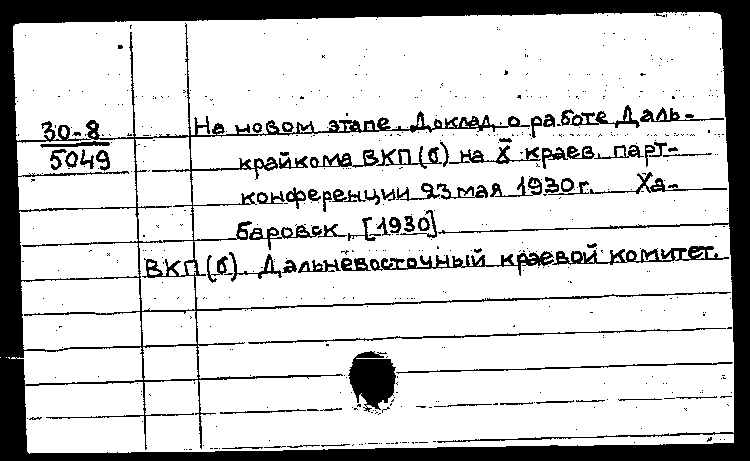 30-8
5049
На новом этапе. Доклад о работе Даль-
крайкома ВКП(б) на X краев. парт-
конференции 23 мая 1930 г. Ха-
баровск, [1930].
ВКП(б). Дальневосточный краевой комитет.